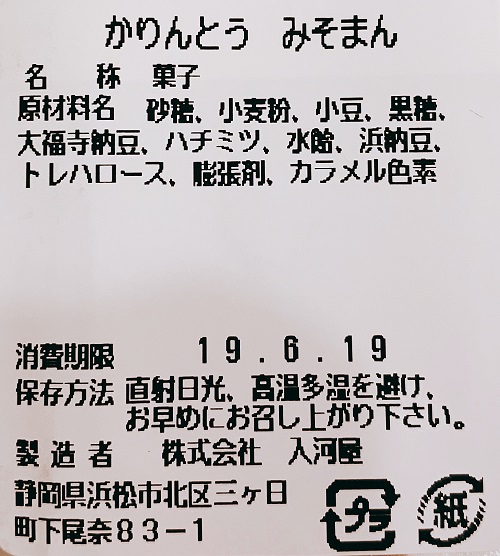 かりんとう　みそまん
名　　称　菓子
原材料名　砂糖、小麦粉、小豆、黒糖、
大福寺納豆、ハチミツ、水飴、浜納豆、
トレハロース、膨張剤、カラメル色素
消費期限　19.6.19
保存方法　直射日光、高温多湿を避け、
お早めにお召し上がり下さい。
製造者　株式会社　入河屋
静岡県浜松市北区三ヶ日
町下尾奈83-1
プラ　紙